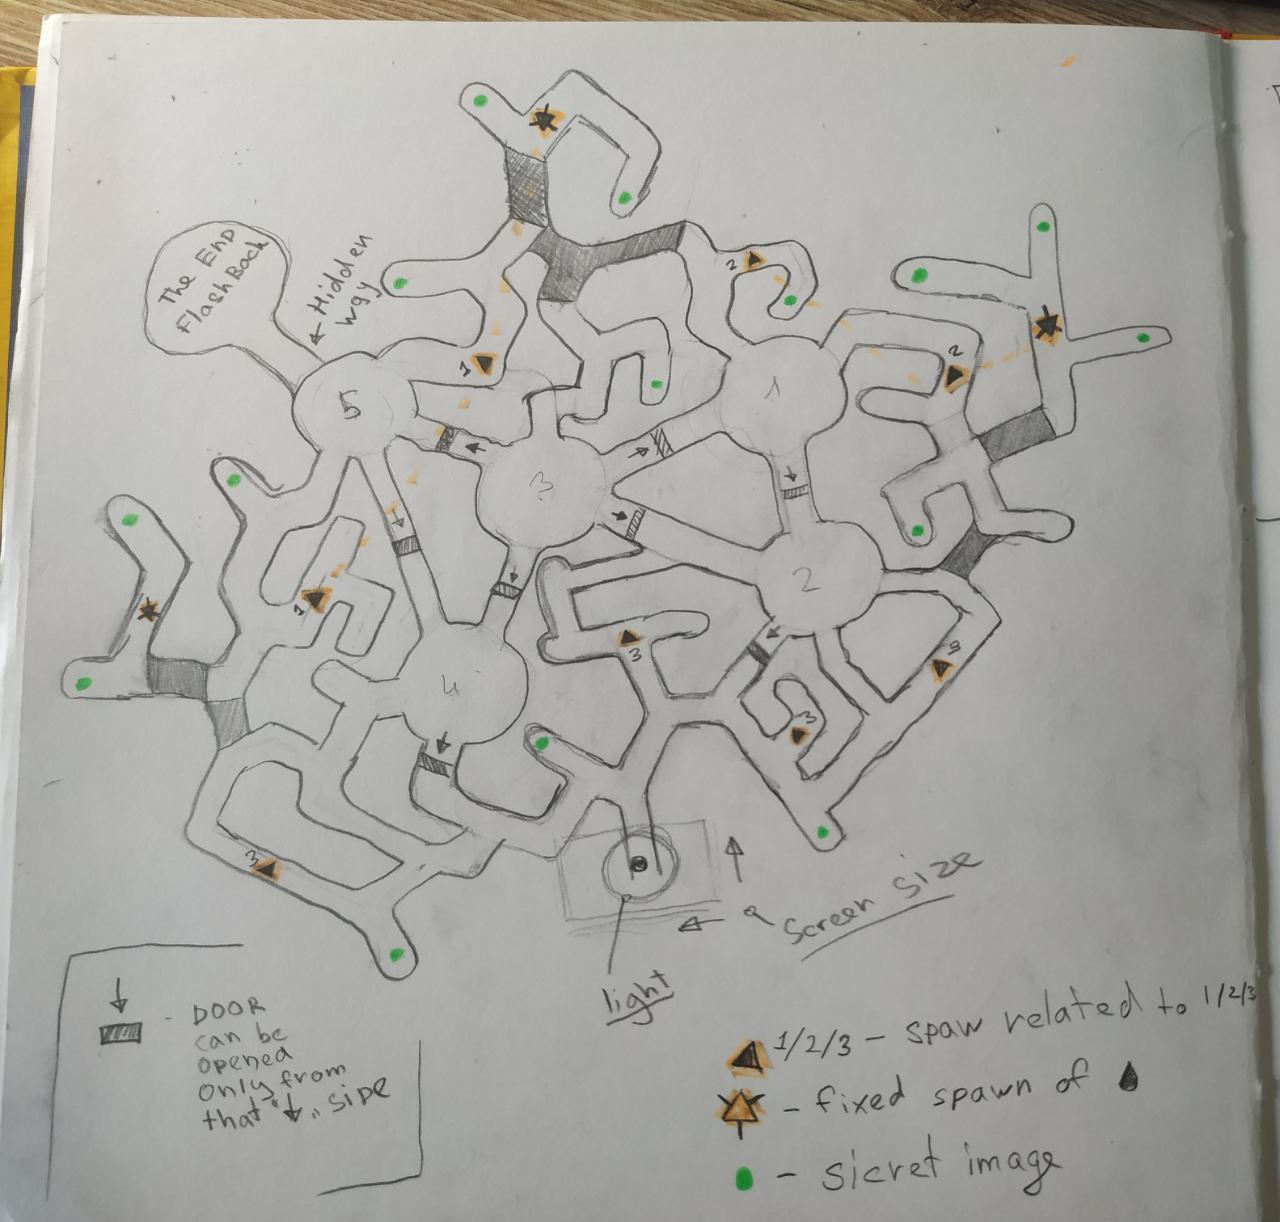 The End
FlashBack
Hidden
way
2
2
1
1
5
3
1
2
4
1
3
3
3
3
Screen size
light
DOOR
can be
opened
only from
that "↓" side
1/2/3 - spaw related to 1/2/3
- fixed spawn of
- sicret image